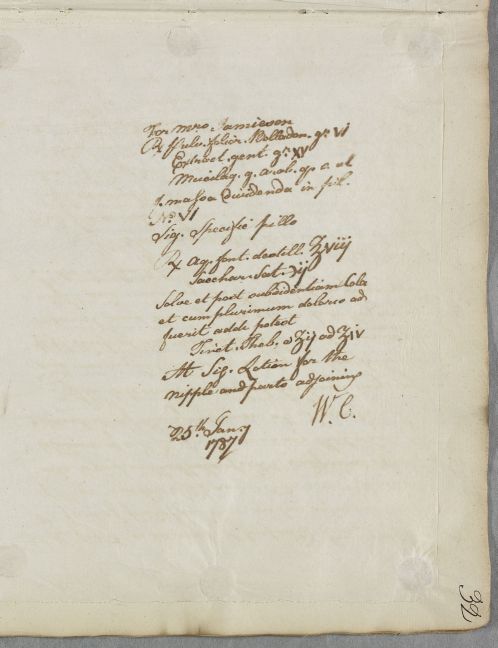 For Mrs. Jamieson
℞ Pulv. folior. Belladon. gr. VI
Extract. gent. gr. XV
Mucilag. g. arab. q. s. et
f. massa dividenda in pil.
No. VI
Sig. Specific pills
℞ Aq. font. destill. ℥viij
Sacchar. Sat. ʒij
Solve et post subsidentiam cola
et cum plurimum doloris ad
fuerit adde potest
Tinct. Theb. a ʒij ad ʒiv
M Sig. Lotion for the
nipple and parts adjoining
W. C.
25th Jany
1787
32